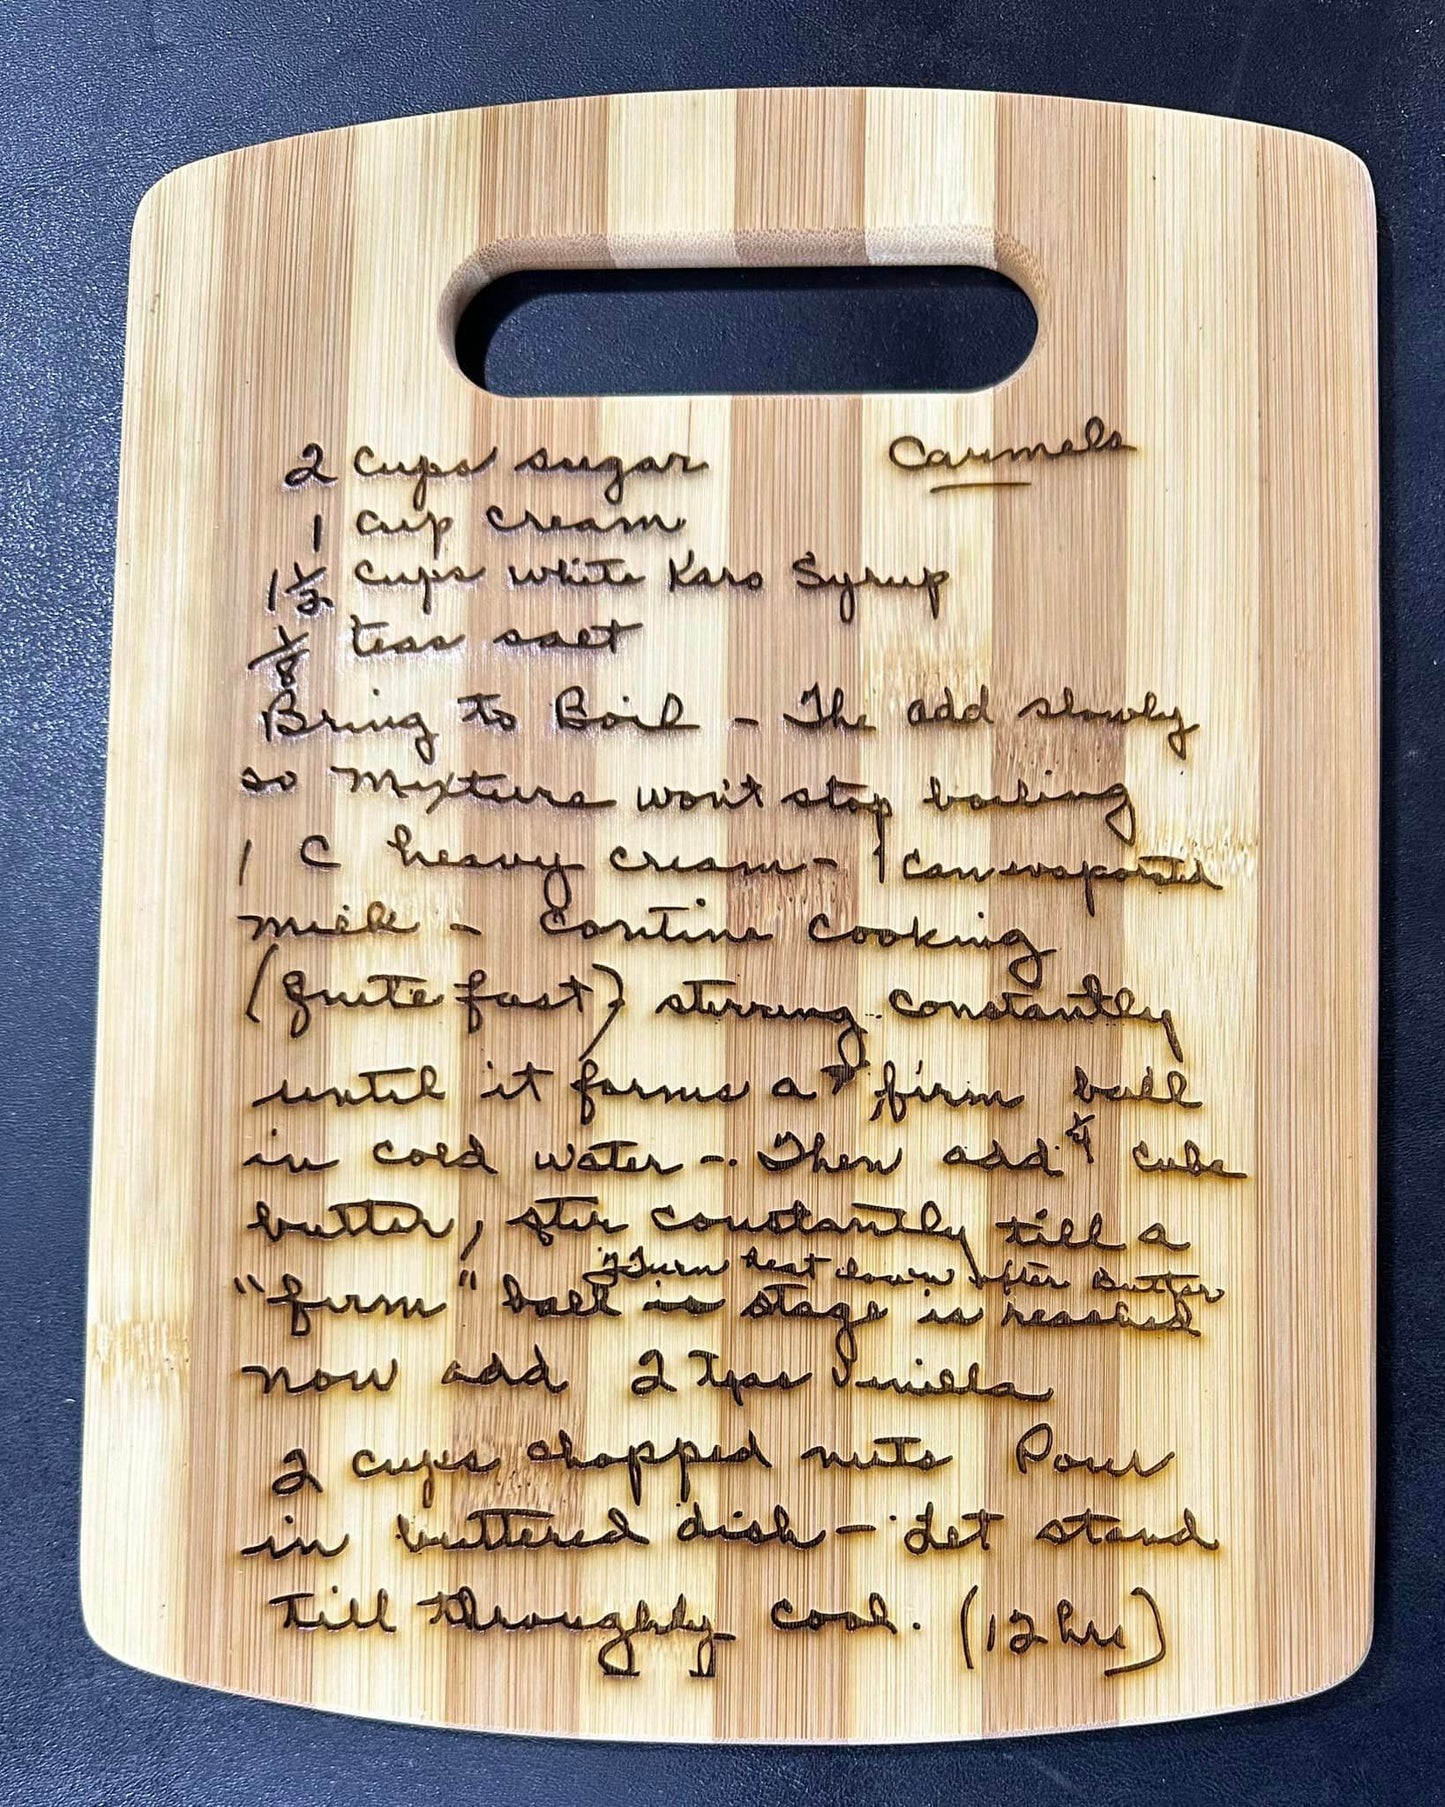 Carmels
2 cups sugar
1 cup cream
1 1/2 cups white Karo Syrup
1/8 teas salt
Bring to Boil - The add slowly
so Mixture won't stop boiling
1 C heavy cream - 1 can evaporated
milk - Continue cooking
(quite fast) stirring constantly
until it forms a firm ball
in cold water -. Then add 1/4 cube
butter, stir constantly till a
Turn heat down after Butter
"firm" ball is stage is reached
now add 2 tsps Vinilla
2 cups chopped nuts Pour
in buttered dish - Let stand
till throughly cool. (12 hrs)